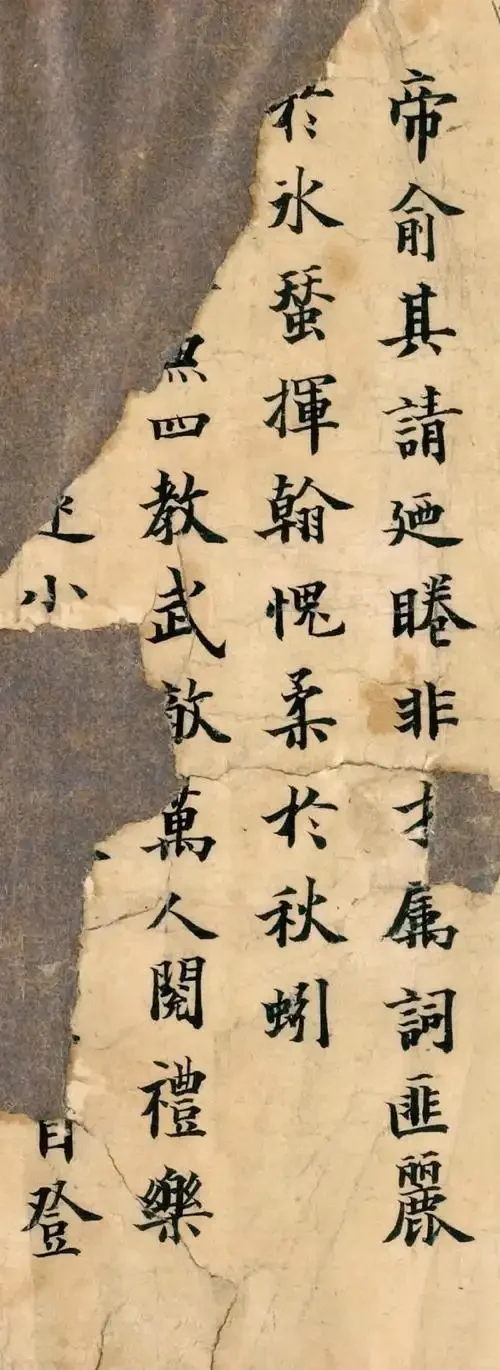 帝俞其請廼睠非才属詞匪麗
於氷蝅揮翰愧柔於秋蚓
四教武敵萬人閱禮樂
小目登